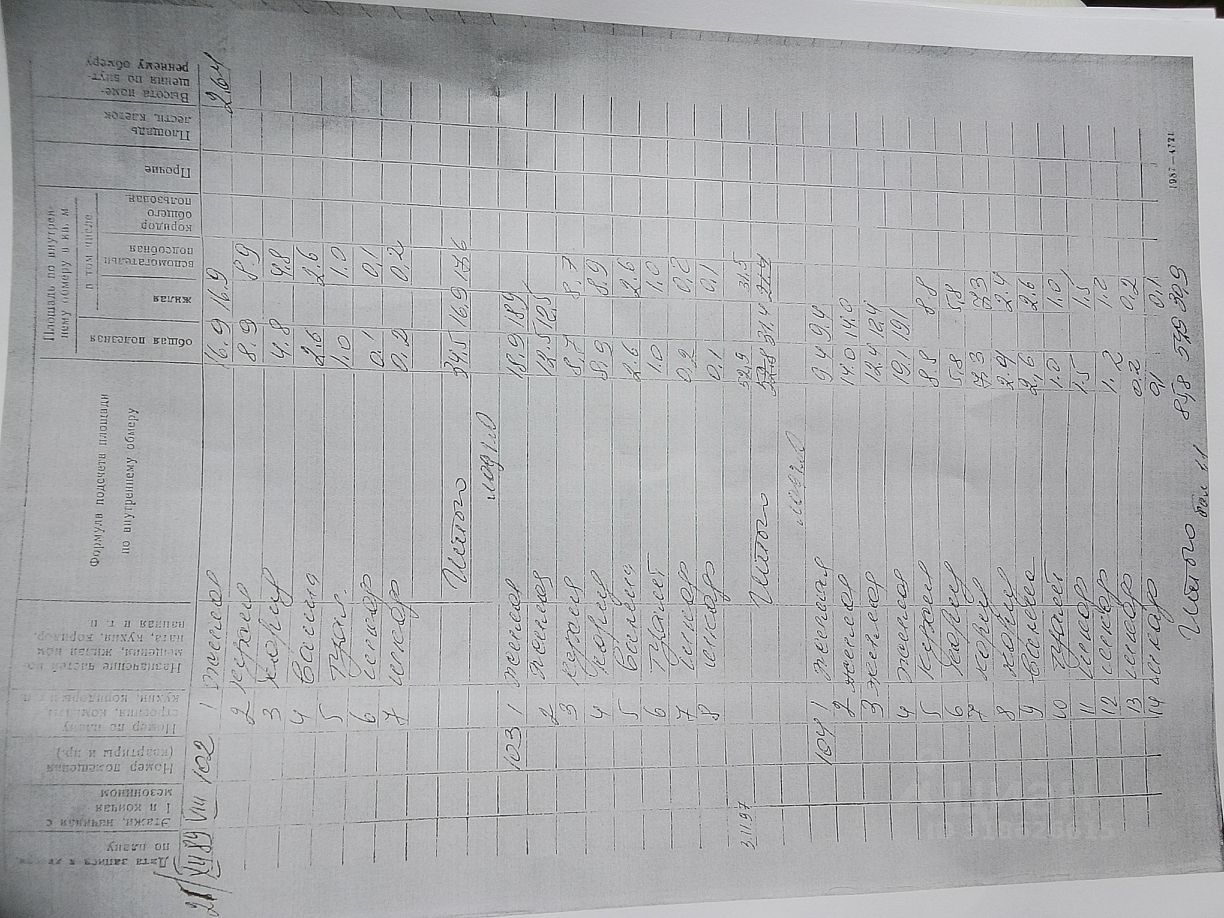 Дата записи
по плану
Этажи, начиная с
1 и кончая
мезонином
Номер помещения
(квартиры и пр.)
Номер по плану
строения, комнаты,
кухни, коридоры и т. п.
Назначение частей по
мещения, жилая ком
ната, кухня, коридор,
ванная и т. п.
Формула подсчета площади
по внутреннему обмеру
Площадь по внутрен-
нему обмеру в кв. м
общая полезная
в том числе
жилая
вспомогательн
подсобная
коридор
общего
пользован.
Прочие
Площадь
лестн. клеток
Высота поме-
щения по внут-
реннему обмеру
VIII 102 1 жилая 16.9 16.9 2.64
2 кухня 8.9 8.9
3 корид 4.8 4.8
4 ванна 2.6 2.6
5 туал. 1.0 1.0
6 шкаф 0.1 0.1
7 шкаф 0.2 0.2
Итого 34.5 16.9 17.6
лодж.
103 1 жилая 18.9 18.9
2 жилая 12.5 12.5
3 кухня 8.7 8.7
4 корид 8.9 8.9
5 ванна 2.6 2.6
6 туалет 1.0 1.0
7 шкаф 0.2 0.2
8 шкаф 0.1 0.1
3.11.97 52.9 31.5
Итого 52.8 31.4 21.4
лодж.
104 1 жилая 9.4 9.4
2 жилая 14.0 14.0
3 жилая 12.4 12.4
4 жилая 19.1 19.1
5 кухня 8.8 8.8
6 корид 5.8 5.8
7 корид 7.3 7.3
8 корид 2.4
9 ванна 2.6 2.6
10 туалет 1.0 1.0
11 шкаф 1.5 1.5
12 шкаф 1.2 1.2
13 шкаф 0.2 0.2
14 шкаф 0.1 0.1
Итого 85.8 30.9
бал 1.1
1987—4721